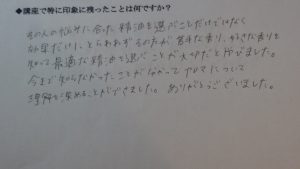 ◆講座で特に印象に残ったことは何ですか？
その人の悩みに合った精油を選ぶことだけではなく
効果だけにとらわれずその方が苦手な香り、好きな香りを
知って最適な精油を選ぶことが大切だと学びました。
今まで知らなかったことがながって アロマについて
理解を深めることができました。ありがとうございました。